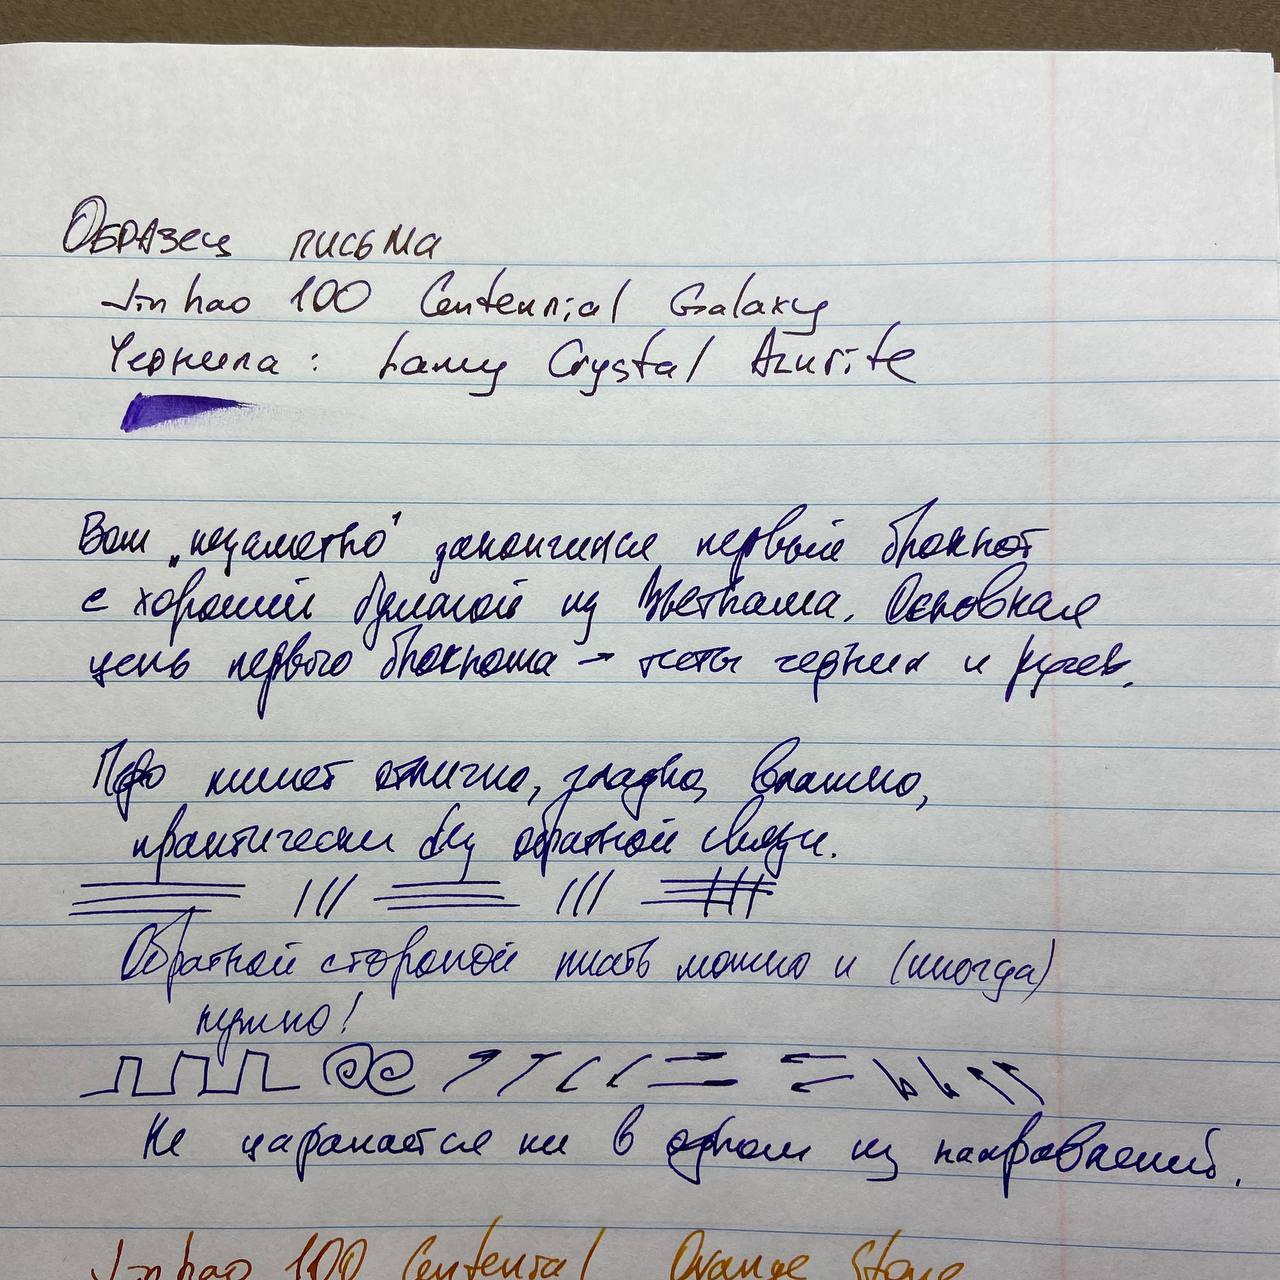 Образец письма
Jinhao 100 Centennial Galaxy
Чернила: Lamy Crystal Azurite
Вот „незаметно" закончился первый блокнот
с хорошей бумагой из Вьетнама. Основная
цель первого блокнота – тесты чернил и ручек.
Перо пишет отлично, гладко, влажно,
практически без обратной связи.
Обратной стороной писать можно и (иногда)
нужно!
Не царапается ни в одном из направлений.
Jinhao 100 Centenial Orange Stone